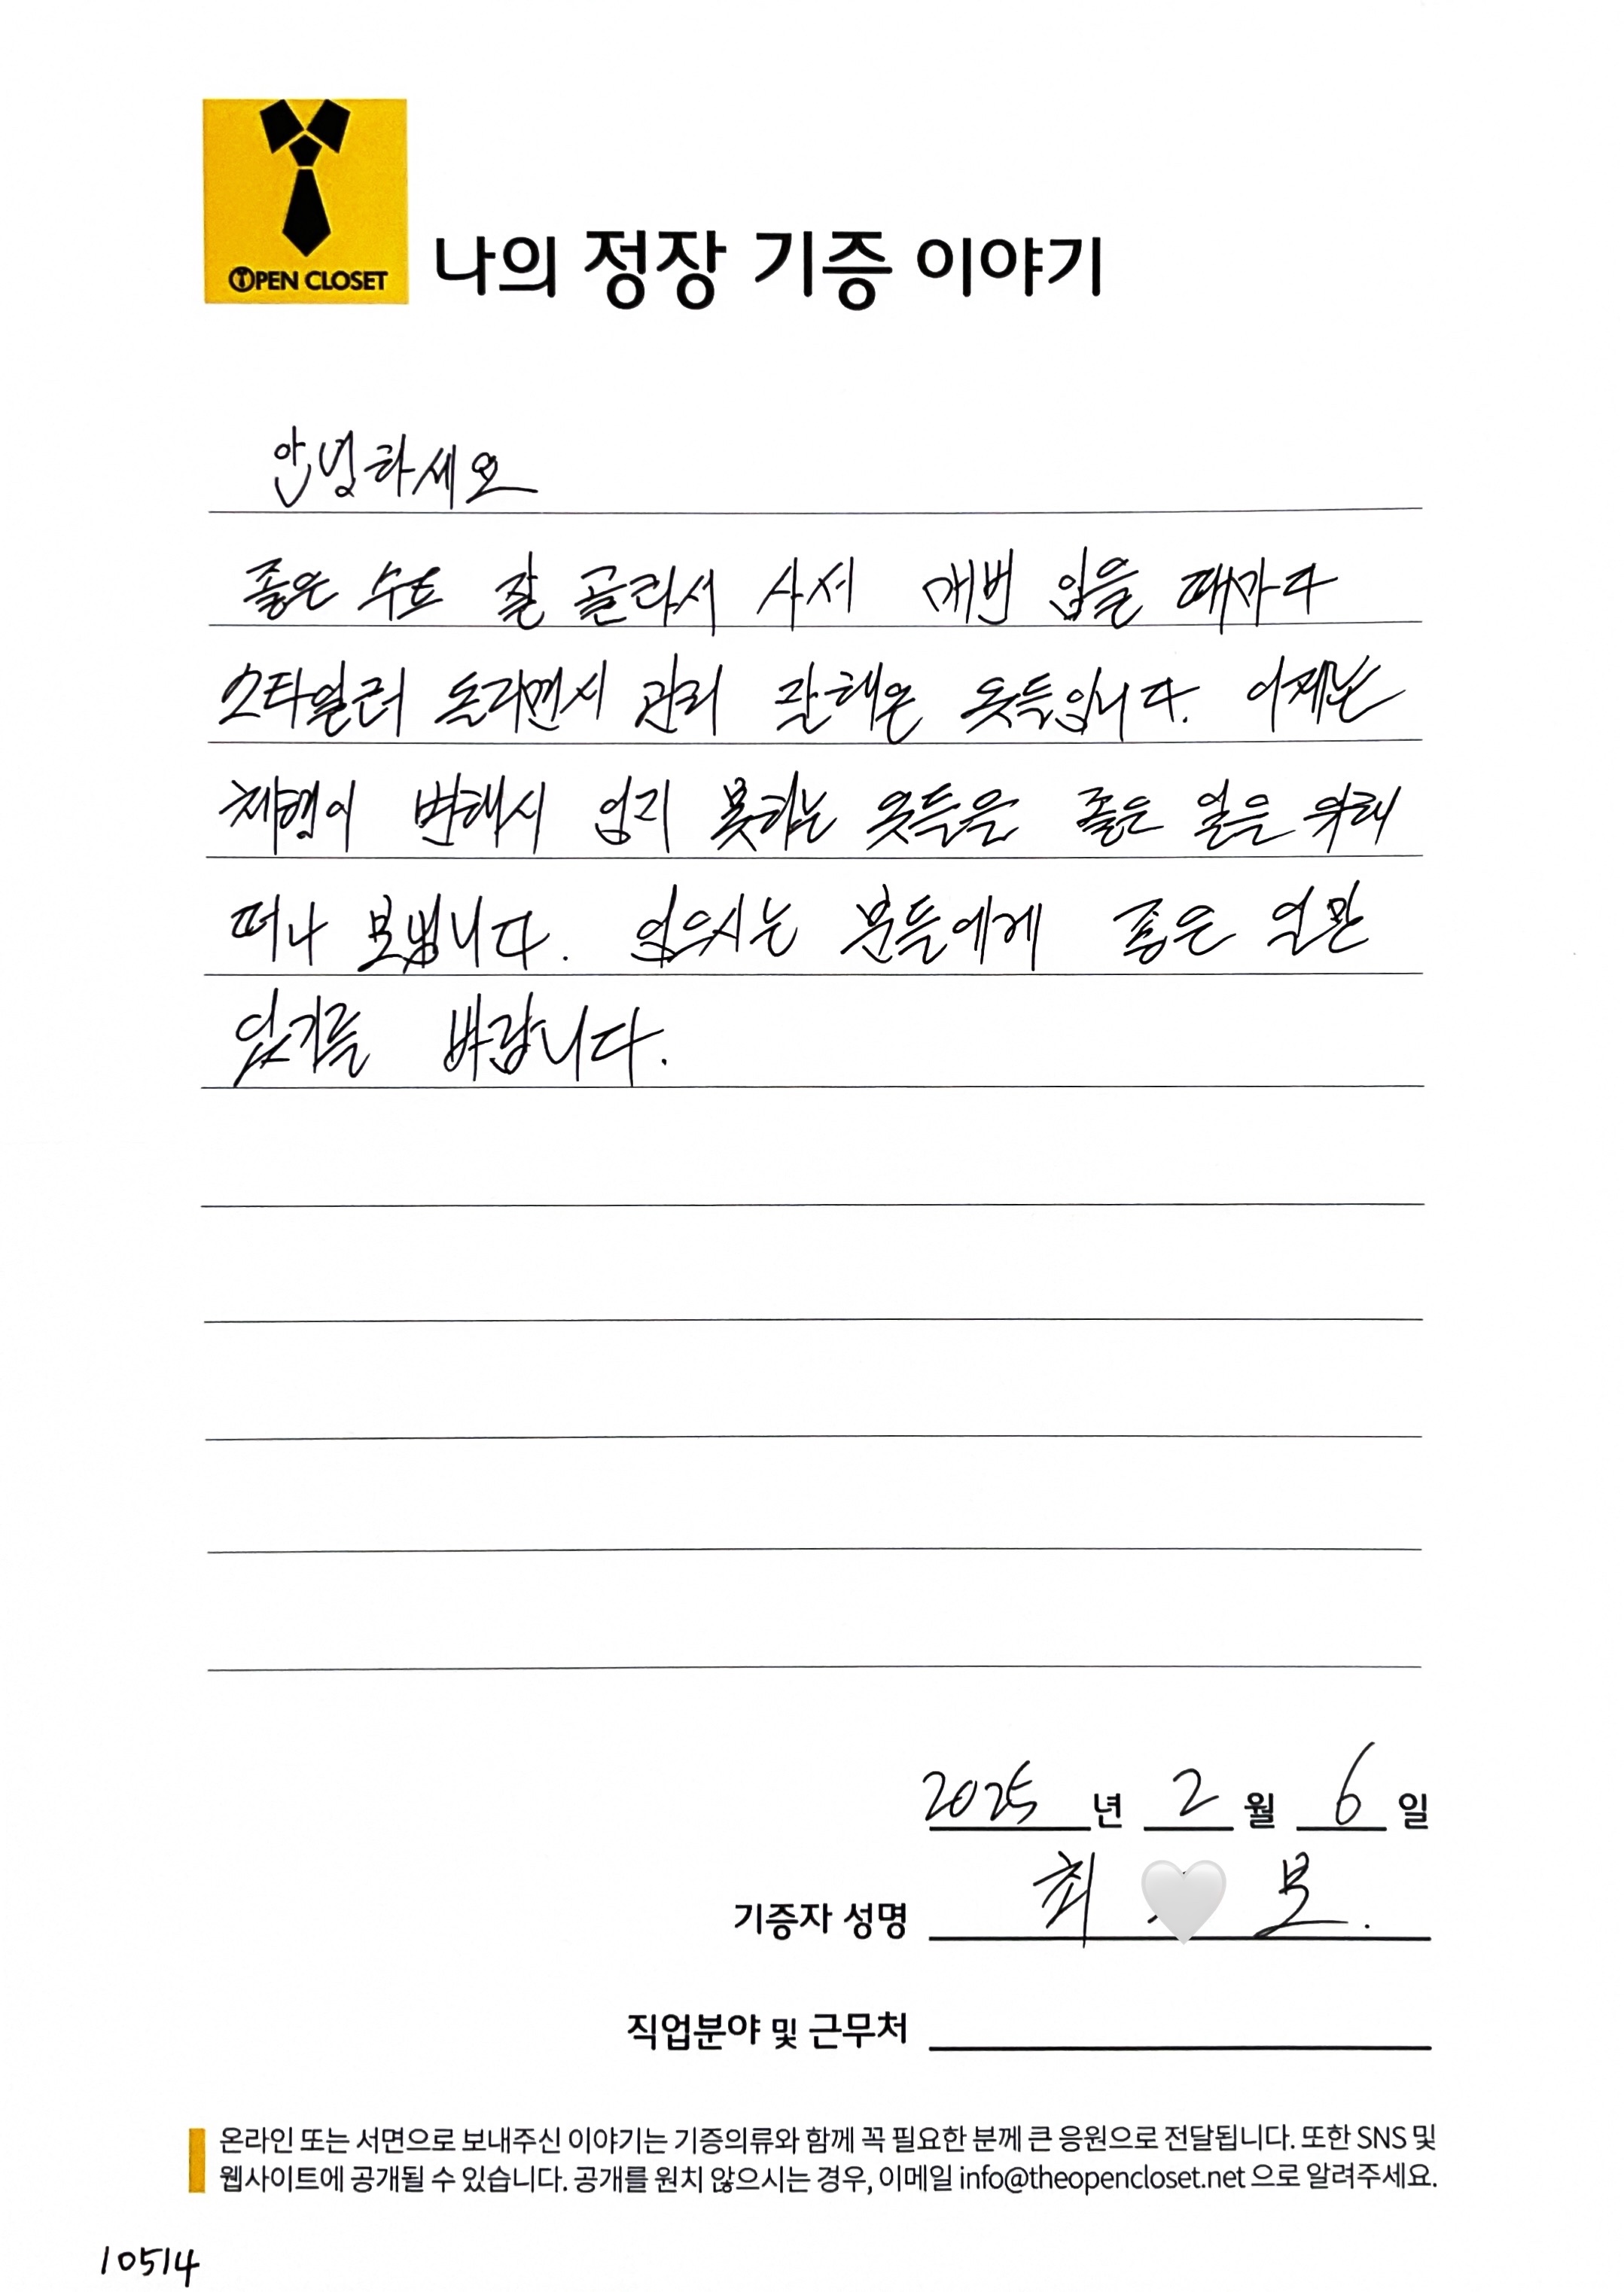 OPEN CLOSET
나의 정장 기증 이야기
안녕하세요
좋은 수트 잘 골라서 사서 매번 입을 때마다
스타일러 돌리면서 관리 잘해온 옷들입니다. 이제는
체형이 변해서 입지 못하는 옷들을 좋은 일을 위해
떠나 보냅니다. 입으시는 분들에게 좋은 일만
있기를 바랍니다.
2025 년 2 월 6 일
기증자 성명 최 보.
직업분야 및 근무처
온라인 또는 서면으로 보내주신 이야기는 기증의류와 함께 꼭 필요한 분께 큰 응원으로 전달됩니다. 또한 SNS 및
웹사이트에 공개될 수 있습니다. 공개를 원치 않으시는 경우, 이메일 info@theopencloset.net 으로 알려주세요.
10514